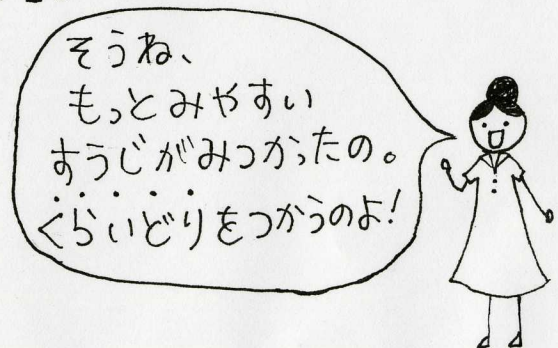 そうね、
もっとみやすい
すうじがみつかったの。
くらいどりをつかうのよ!